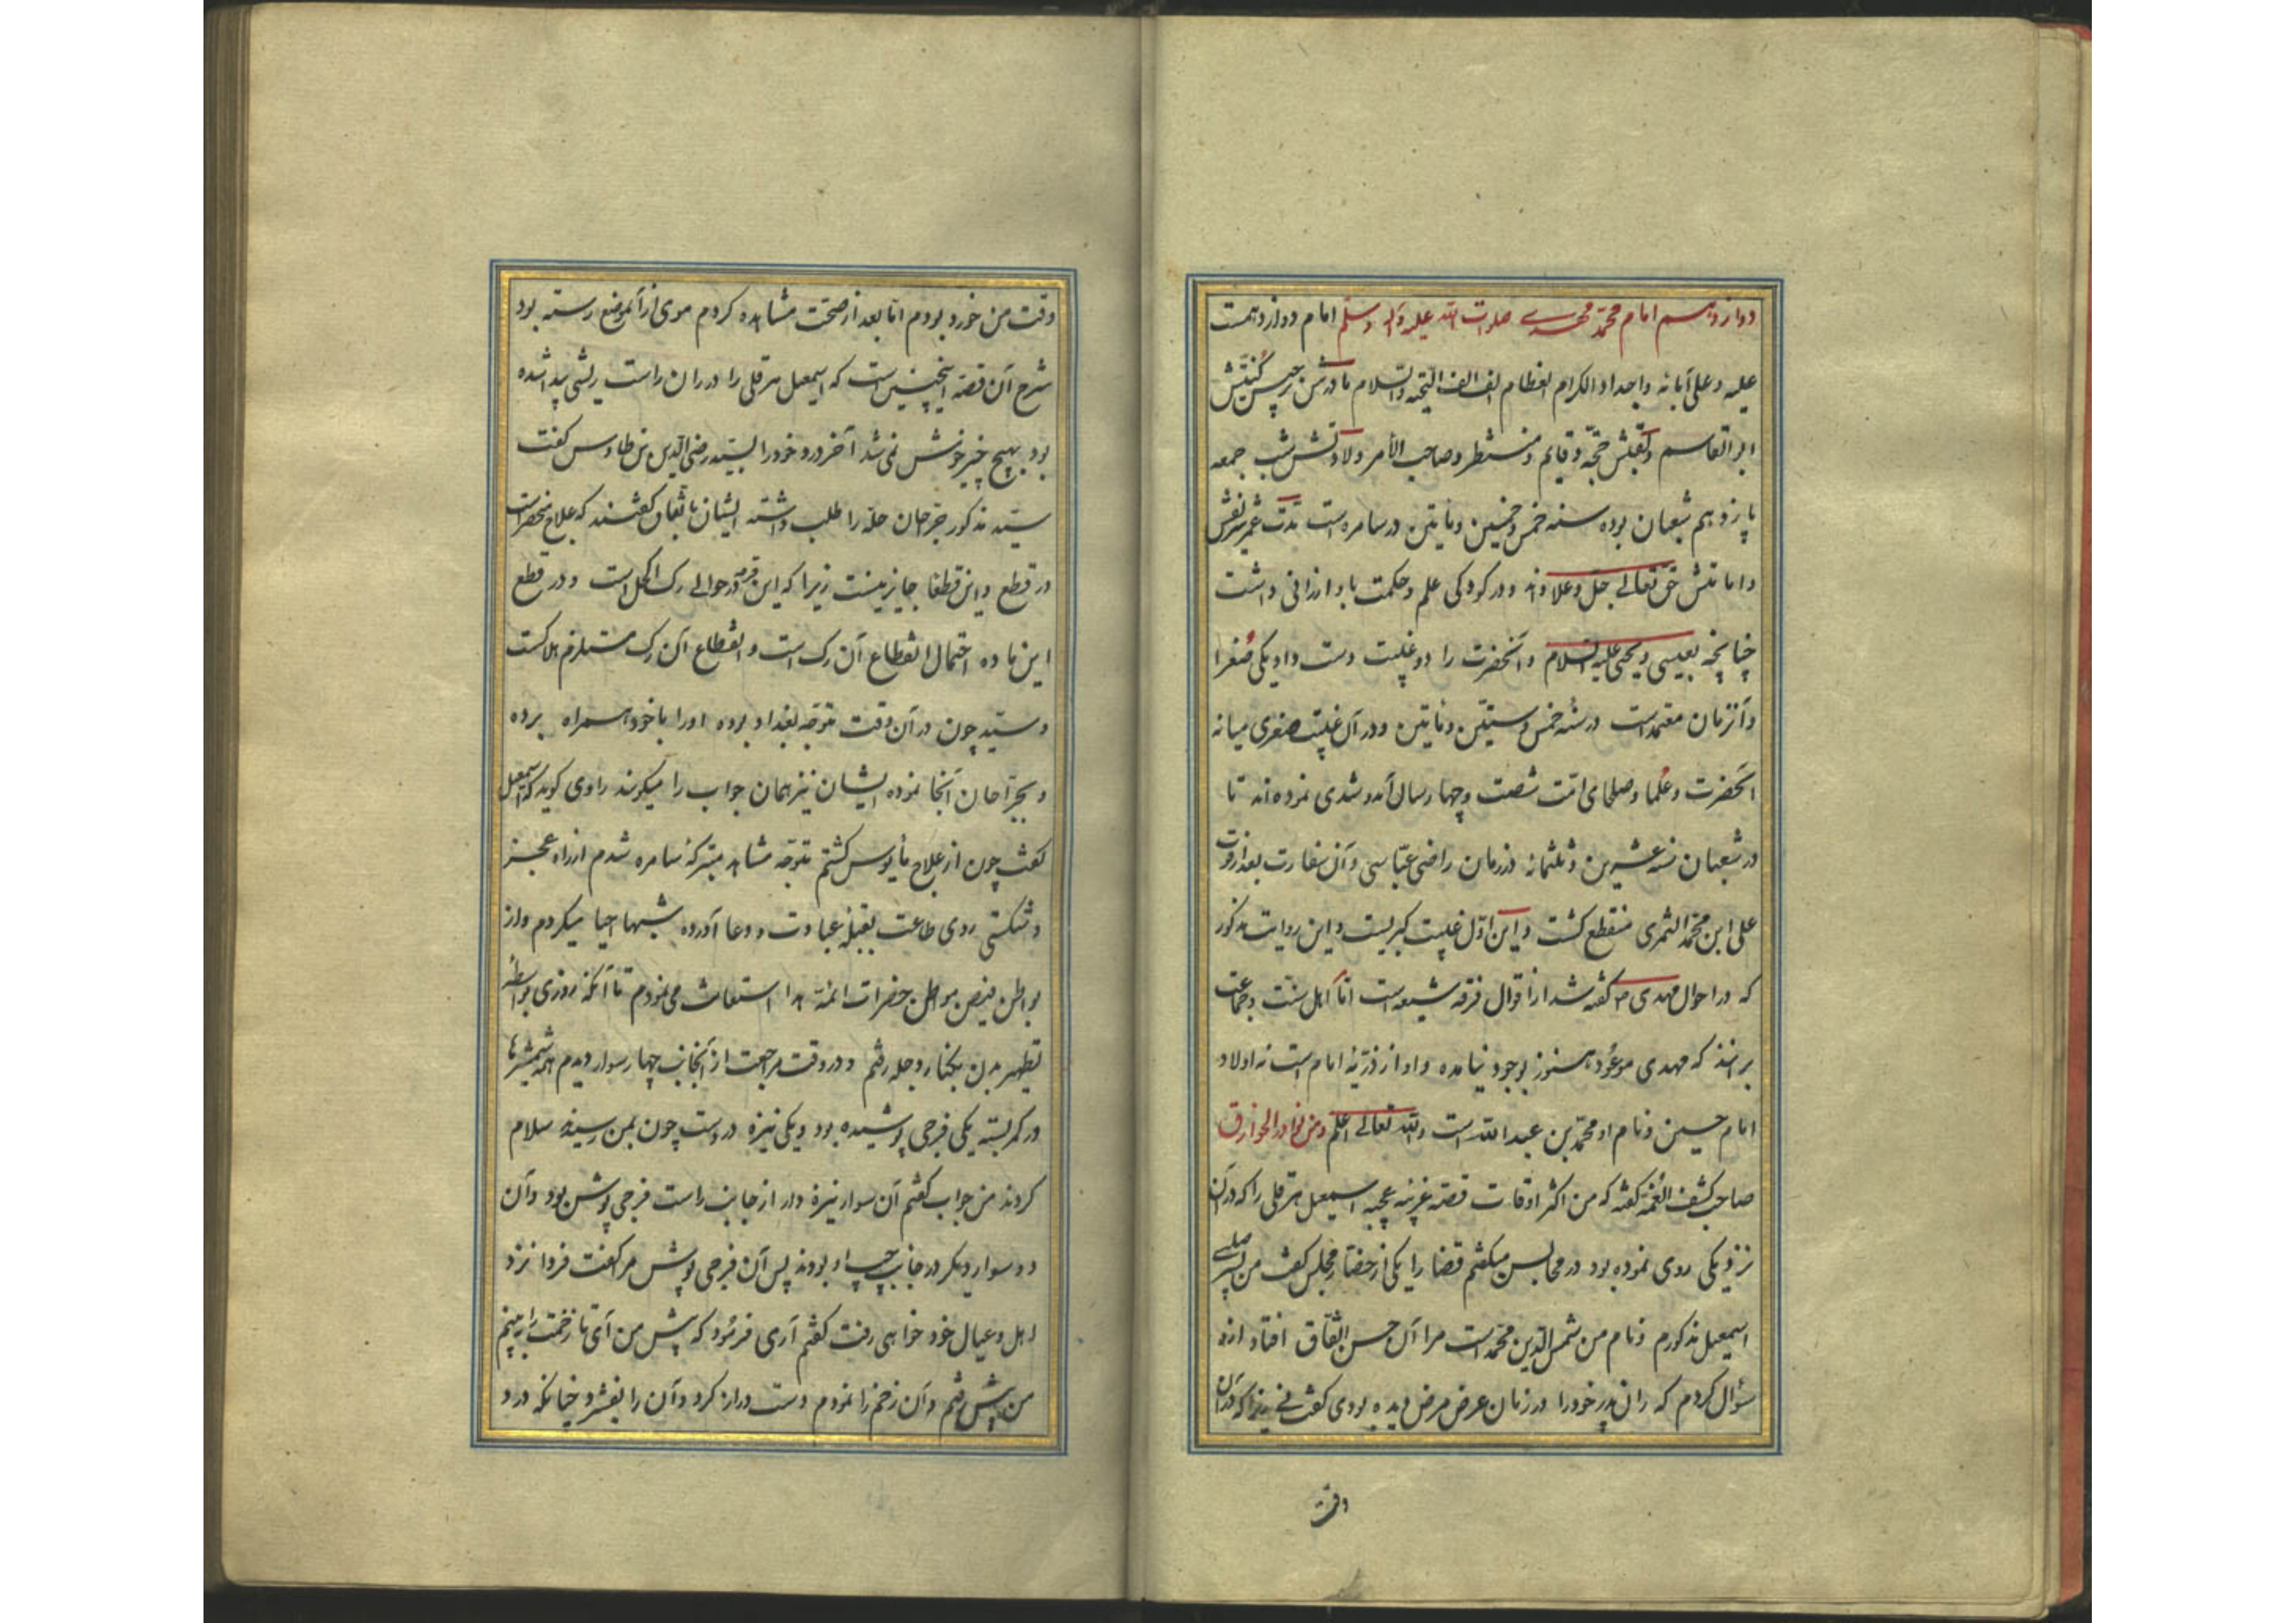 دوازدهم امام محمد مهدی صلوات الله علیه وآله وسلم امام دوازدهمست
علیه وعلی آبائه واجداد الکرام العظام الف الف التحیه والسلام مادرش نرجس کنیتش
ابوالقاسم ولقبش حجّه وقایم ومنتظر وصاحب الأمر ولادتش شب جمعه
پانزدهم شعبان بوده سنه خمس وخمسین ومایتین در سامره است مدّت عمر شریفش
وامامتش حق تعالی جلّ وعلا داند ودر کودکی علم وحکمت باو ارزانی داشت
چنانچه بعیسی ویحیی علیه السلام وآنحضرت را دو غیبت دست داد یکی صُغرا
وآنزمان معتمدست در سنهٔ خمس وستّین ومایتین ودر آن غیبت صغری میانه
آنحضرت وعُلما وصلحای امّت شصت وچهار سال آمد وشدی نموده‌اند تا
در شعبان سنه عشرین وثلثمائه در زمان راضی عبّاسی وآن سفارت بعد از فوت
علی ابن محمّد الثمری منقطع کشت واین اوّل غیبت کبریست واین روایت مذکور
که در احوال مهدی م کفته شد از اقوال فرقه شیعه است امّا اهل سنت وجماعت
برانند که مهدی موعُود هنوز بوجود نیامده واو از ذرّیهٔ امام است نه اولاد
امام حسین ونام او محمّد بن عبد الله است والله تعالی اعلم ومن نوادر الخوارق
صاحب کشف الغُمّه کفته که من اکثر اوقات قصّه غریبه عجیبه اسمعیل هرقلی را که در آن
نزدیکی روی نموده بود در مجالس میکفتم قضا را یکی از حضّار مجلس کفت من پسر صلبی
اسمعیل مذکورم ونام من شمس الدّین محمّد است مرا آن حسن اتّفاق افتاد ازو
سؤال کردم که ران پدر خود را در زمان عرض مرض دیده بودی کفت نی زیرا که در آن
وقت
وقت من خورد بودم امّا بعد از صحّت مشاهده کردم موی از آنموضع رسته بود
شرح آن قصّه اینچنین است که اسمعیل هرقلی را در ران راست ریشی پیدا شده
بود بهیچ چیز خوش نمی شد آخر درد خود را بسیّد رضی الدّین بن طاوس کفت
سیّد مذکور جرّاحان حلّه را طلب داشته ایشان باتّفاق کفتند که علاج منحصرست
در قطع واین قطعا جایز نیست زیرا که این قرحه در حوالی رک اکحل است ودر قطع
این ماده احتمال انقطاع آن رک است وانقطاع آن رک مستلزم هلاکست
وسیّد چون در آن وقت متوجّه بغداد بوده اورا با خود همراه برده
وبجرّاحان آنجا نموده ایشان نیز همان جواب را میکویند راوی کوید که اسمعیل
کفت چون از علاج مأیوس کشتم متوجّه مشاهد متبرّکهٔ سامره شدم از راه عجز
وشکستی روی طاعت بقبلهٔ عبادت ودعا آورده شبها احیا میکردم واز
بواطن فیض مواطن حضرات ائمّه هدا استغاثه می نمودم تا آنکه روزی بواسطهٔ
تطهیر بدن بکنار دجله رفتم ودر وقت مراجعت از آنجانب چهار سوار دیدم همه شمشیرها
در کمر بسته یکی فرجی پوشیده بود ویکی نیزه در دست چون بمن رسیدند سلام
کردند من جواب کفتم آن سوار نیزه دار از جانب راست فرجی پوش بود وآن
دو سوار دیکر در جانب چپ او بودند پس آن فرجی پوش مرا کفت فردا نزد
اهل وعیال خود خواهی رفت کفتم آری فرمُود که پیش من آی تا زخمت را ببینم
من پیش رفتم وآن زخم را نمودم دست دراز کرد وآن را بفشرد چنانکه درد